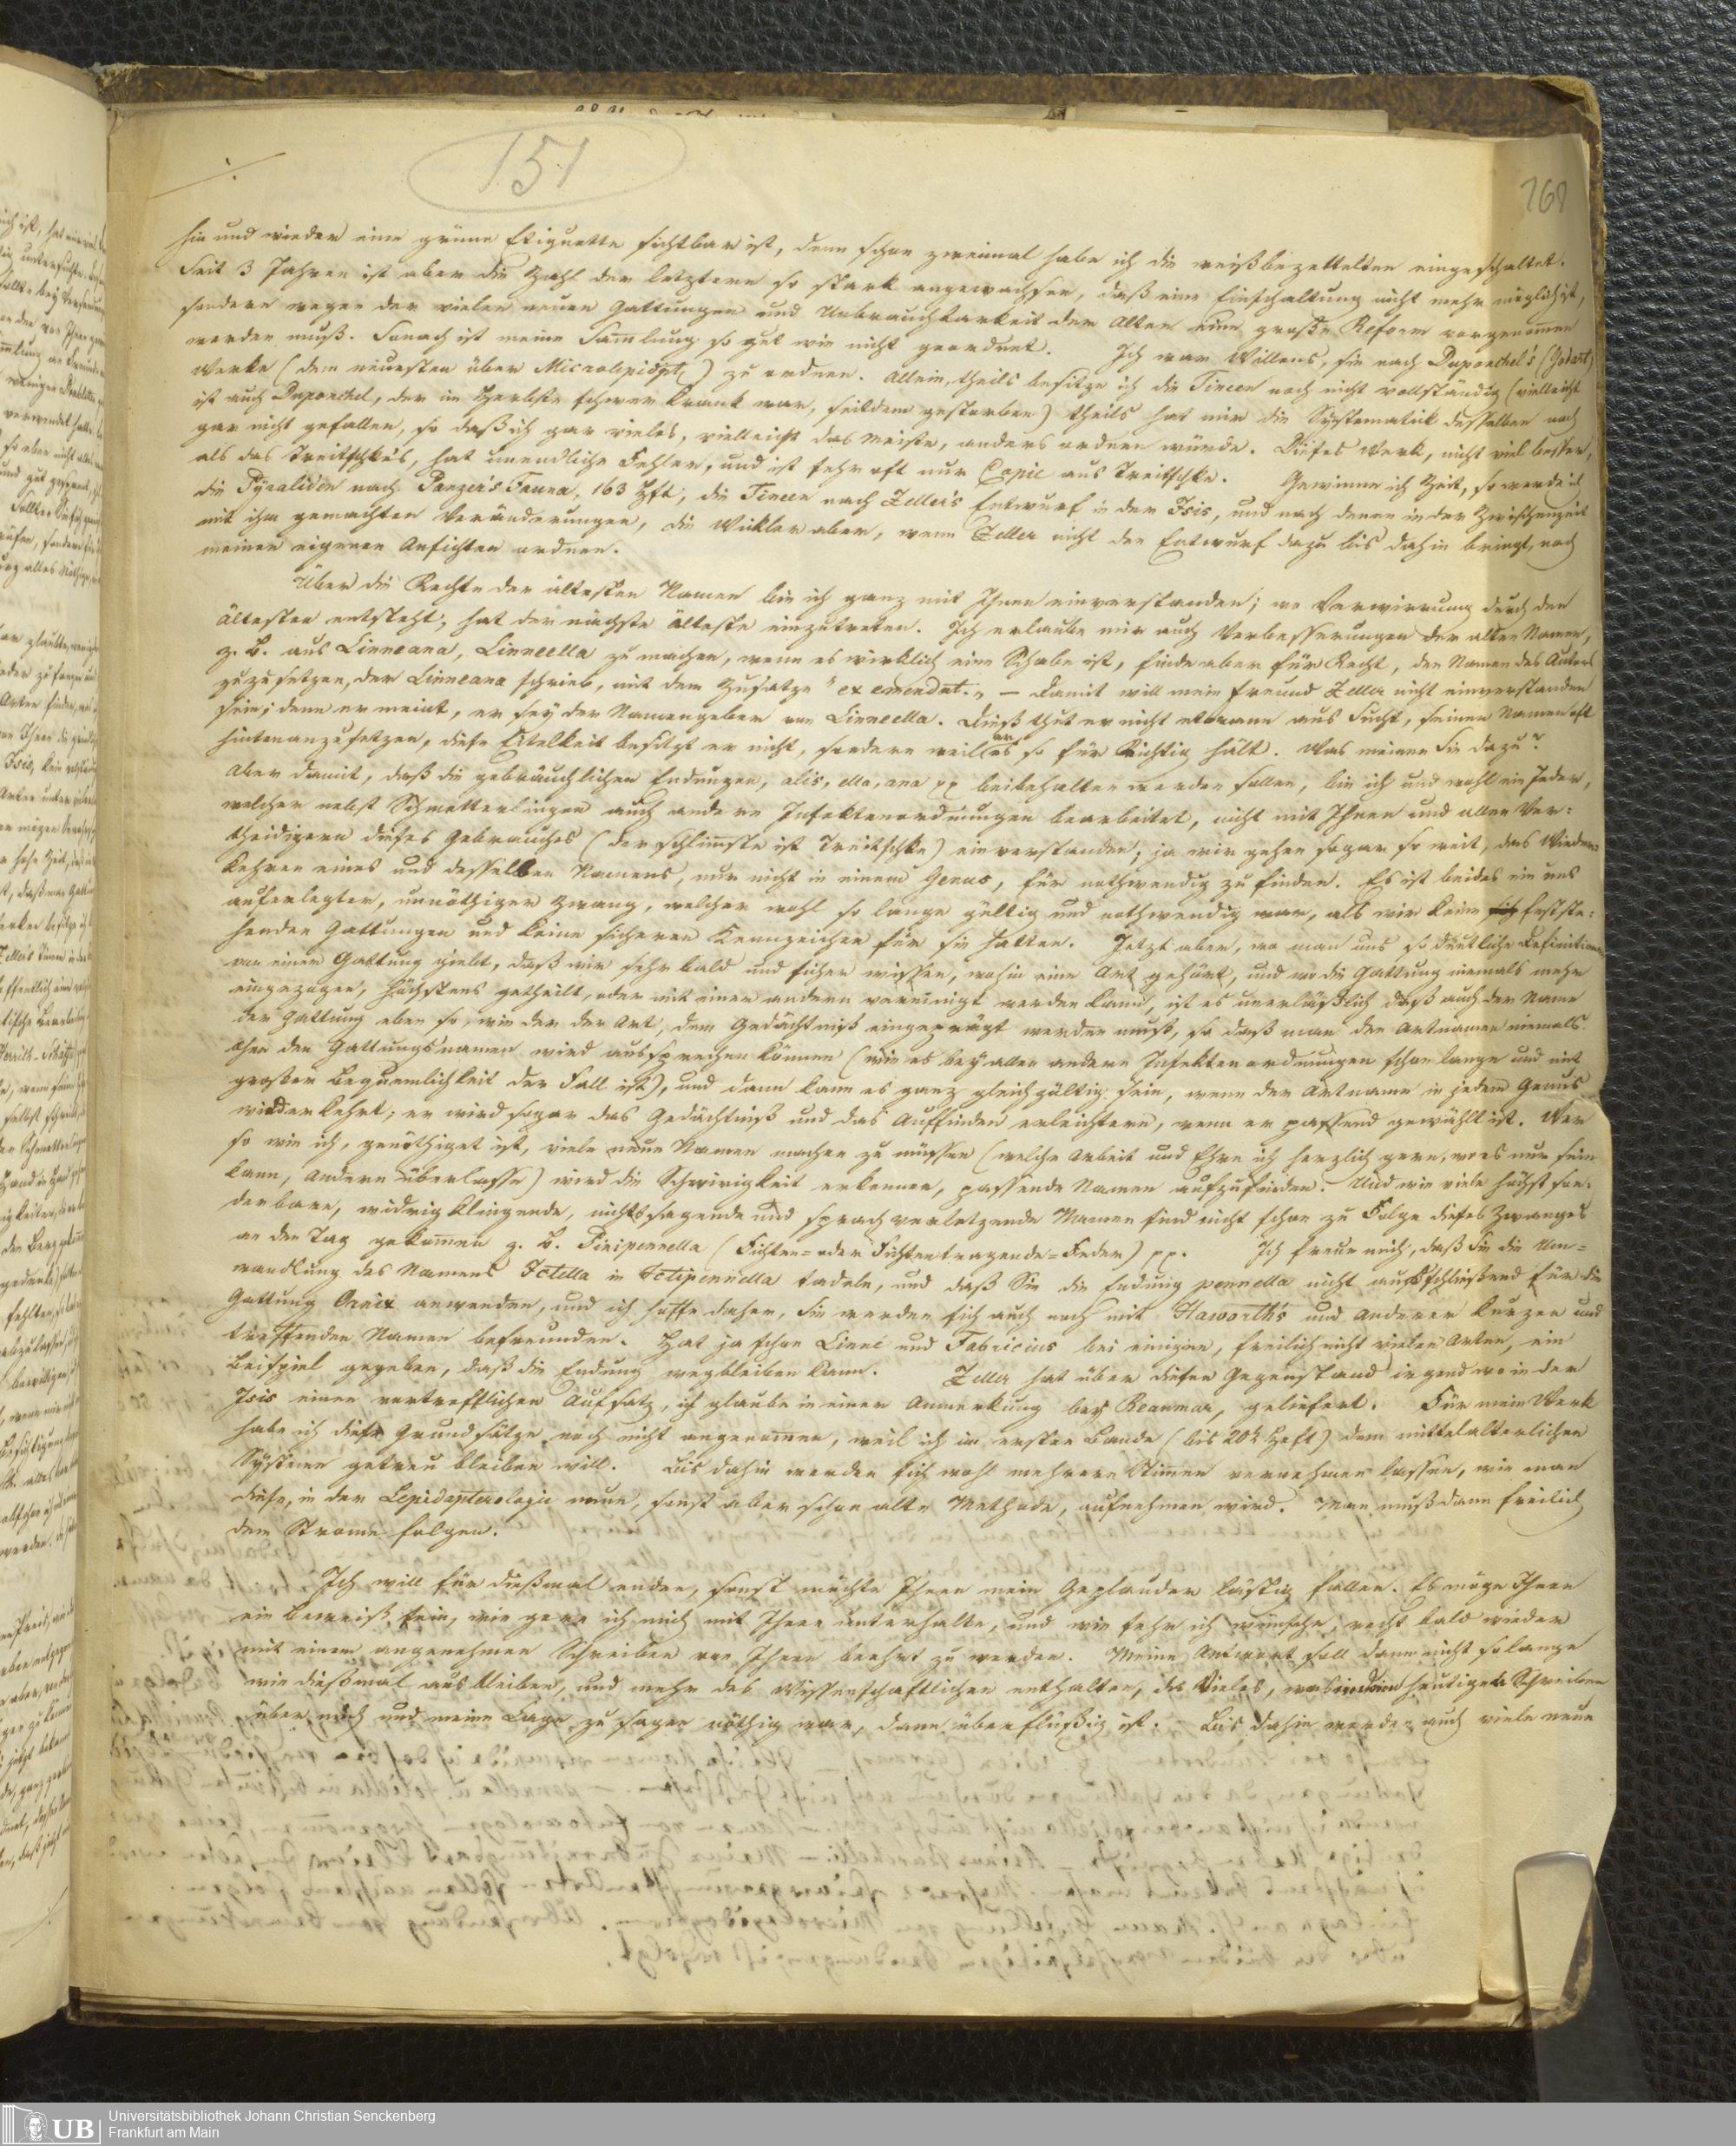 151
268
hin und wieder eine grüne Etiquette sichtbar ist, denn schon zweimal habe ich die weißbezettelten eingeschaltet.
Seit 3 Jahren ist aber die Zahl der letztern so stark angewachsen, daß eine Einschaltung nicht mehr möglich ist,
sondern wegen der vielen neuen Gattungen und Unbrauchbarkeit der Alten eine große Reform vorgenommen
werden muß. Sonach ist meine Sammlung so gut wie nicht geordnet. Ich war Willens, sie nach Duponchel's (Godart)
Werke (dem neuesten über Microlepidopt.) zu ordnen. Allein, theils besitze ich die Tineen noch nicht vollständig (vielleicht
ist auch Duponchel, der im Herbste schwer krank war, seitdem gestorben) theils hat mir die Systematik desselben noch
gar nicht gefallen, so daß ich gar vieles, vielleicht das Meiste, anders ordnen würde. Dieses Werk, nicht viel besser,
als das Treitschke's, hat unendliche Fehler, und ist sehr oft nur Copie aus Treitschke. Gewinne ich Zeit, so werde ich
die Pyraliden nach Panzer's Fauna, 163 Hft, die Tineen nach Zeller's Entwurf in der Isis, und nach denen in der Zwischenzeit
mit ihm gemachten Veränderungen, die Wickler aber, wenn Zeller nicht den Entwurf dazu bis dahin bringt, nach
meinen eigenen Ansichten ordnen.
Über die Rechte der ältesten Namen bin ich ganz mit Ihnen einverstanden; wo Verwirrung durch den
ältesten entsteht, hat der nächste älteste einzutreten. Ich erlaube mir auch Verbesserungen der alten Namen,
z. B. aus Linneana, Linneella zu machen, wenn es wirklich eine Schabe ist, finde aber für Recht, den Namen des Autors
zuzusetzen, der Linneana schrieb, mit dem Zusatze "ex emendat." — Damit will mein Freund Zeller nicht einverstanden
sein; denn er meint, er sey der Namengeber von Linneella. Dieß thut er nicht etwann aus Sucht, seinen Namen oft
hintenanzusetzen, diese Eitelkeit besitzt er nicht, sondern weil er es so für Richtig hält. Was meinen Sie dazu?
Aber damit, daß die gebräuchlichen Endungen, alis, ella, ana pp beibehalten werden sollen, bin ich und wohl ein Jeder,
welcher nebst Schmetterlingen auch andere Insektenordnungen bearbeitet, nicht mit Ihnen und allen Ver-
theidigern dieses Gebrauches (der schlimmste ist Treitschke) einverstanden; ja wir gehen sogar so weit, das Wieder-
kehren eines und desselben Namens, nur nicht in einem Genus, für nothwendig zu finden. Es ist beides ein uns
auferlegter, unnöthiger Zwang, welcher wohl so lange gültig und nothwendig war, als wir keine festste-
henden Gattungen und keine sicheren Kennzeichen für sie hatten. Jetzt aber, wo man uns so deutliche Definitionen
von einer Gattung giebt, daß wir sehr bald und sicher wissen, wohin eine Art gehört, und wo die Gattung niemals mehr
eingezogen, höchstens getheilt, oder mit einer andern vereinigt werden kann, ist es unerläßlich daß auch der Name
der Gattung eben so, wie der der Art, dem Gedächtniß eingeprägt werden muß, so daß man den Artnamen niemals
ohne den Gattungsnamen wird aussprechen können (wie es bey allen andern Insektenordnungen schon lange und mit
großer Bequemlichkeit der Fall ist), und dann kann es ganz gleichgültig sein, wenn der Artname in jedem Genus
wiederkehrt; er wird sogar das Gedächtniß und das Auffinden erleichtern, wenn er passend gewählt ist. Wer
so wie ich, genöthiget ist, viele neue Namen machen zu müssen (welche Arbeit und Ehre ich herzlich gern, wo es nur sein
kann, Andern überlasse) wird die Schwirigkeit erkennen, passende Namen aufzufinden. Und wie viele höchst son-
derbare, widrig klingende, nichtssagende und sprachverletzende Namen sind nicht schon zu Folge dieses Zwanges
an den Tag gekommen z. B. Pinipennella (Fichten- oder Fichtentragende-Feder) pp. Ich freue mich, daß Sie die Um-
wandlung des Namens Ictella in Ictipennella tadeln, und daß Sie die Endung pennella nicht ausschließend für die
Gattung Ornix anwenden, und ich hoffe daher, Sie werden sich auch noch mit Haworth's und Anderer kurzen und
treffenden Namen befreunden. Hat ja schon Linné und Fabricius bei einigen, freilich nicht vielen Arten, ein
Beispiel gegeben, daß die Endung wegbleiben kann. Zeller hat über diesen Gegenstand irgend wo in der
Isis einen vortrefflichen Aufsatz, ich glaube in einer Anmerkung bey Reaumur, geliefert. Für mein Werk
habe ich diese Grundsätze noch nicht angenommen, weil ich im ersten Bande (bis 20t Heft) dem mittelalterlichen
Systeme getreu bleiben will. Bis dahin werden sich wohl mehrere Stimmen vernehmen lassen, wie man
diese, in der Lepidopterologie neue, sonst aber schon alte Methode, aufnehmen wird. Man muß dann freilich
dem Strome folgen.
Ich will für dießmal enden, sonst möchte Ihnen mein Geplauder lästig fallen. Es möge Ihnen
ein Beweiß sein, wie gern ich mich mit Ihnen unterhalte, und wie sehr ich wünsche, recht bald wieder
mit einem angenehmen Schreiben von Ihnen beehrt zu werden. Meine Antwort soll dann nicht so lange
wie dießmal ausbleiben, und mehr des Wissenschaftlichen enthalten, da Vieles, was in dem heutigen Schreiben
über mich und meine Lage zu sagen nöthig war, dann überflüßig ist. Bis dahin werden auch viele neue
UB Universitätsbibliothek Johann Christian Senckenberg
Frankfurt am Main